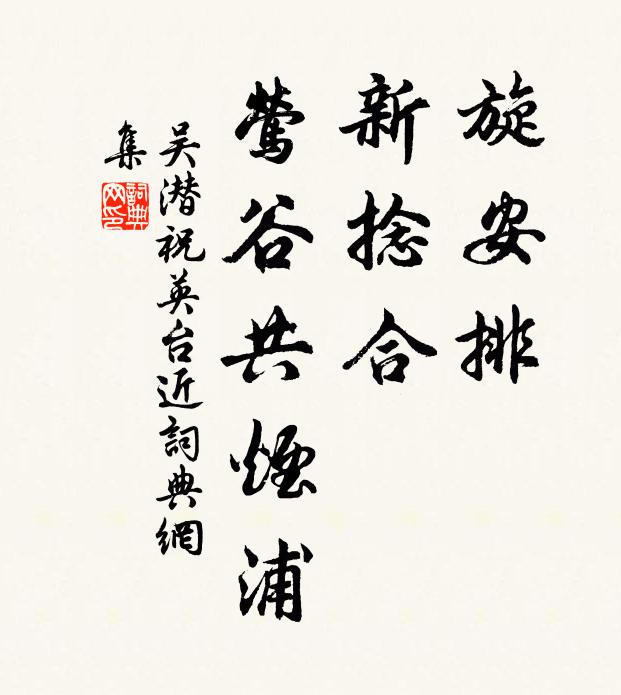 旋安排
新捻合
鶯谷共煙浦
吴潜祝英台近詞典網
集
詞典
网印